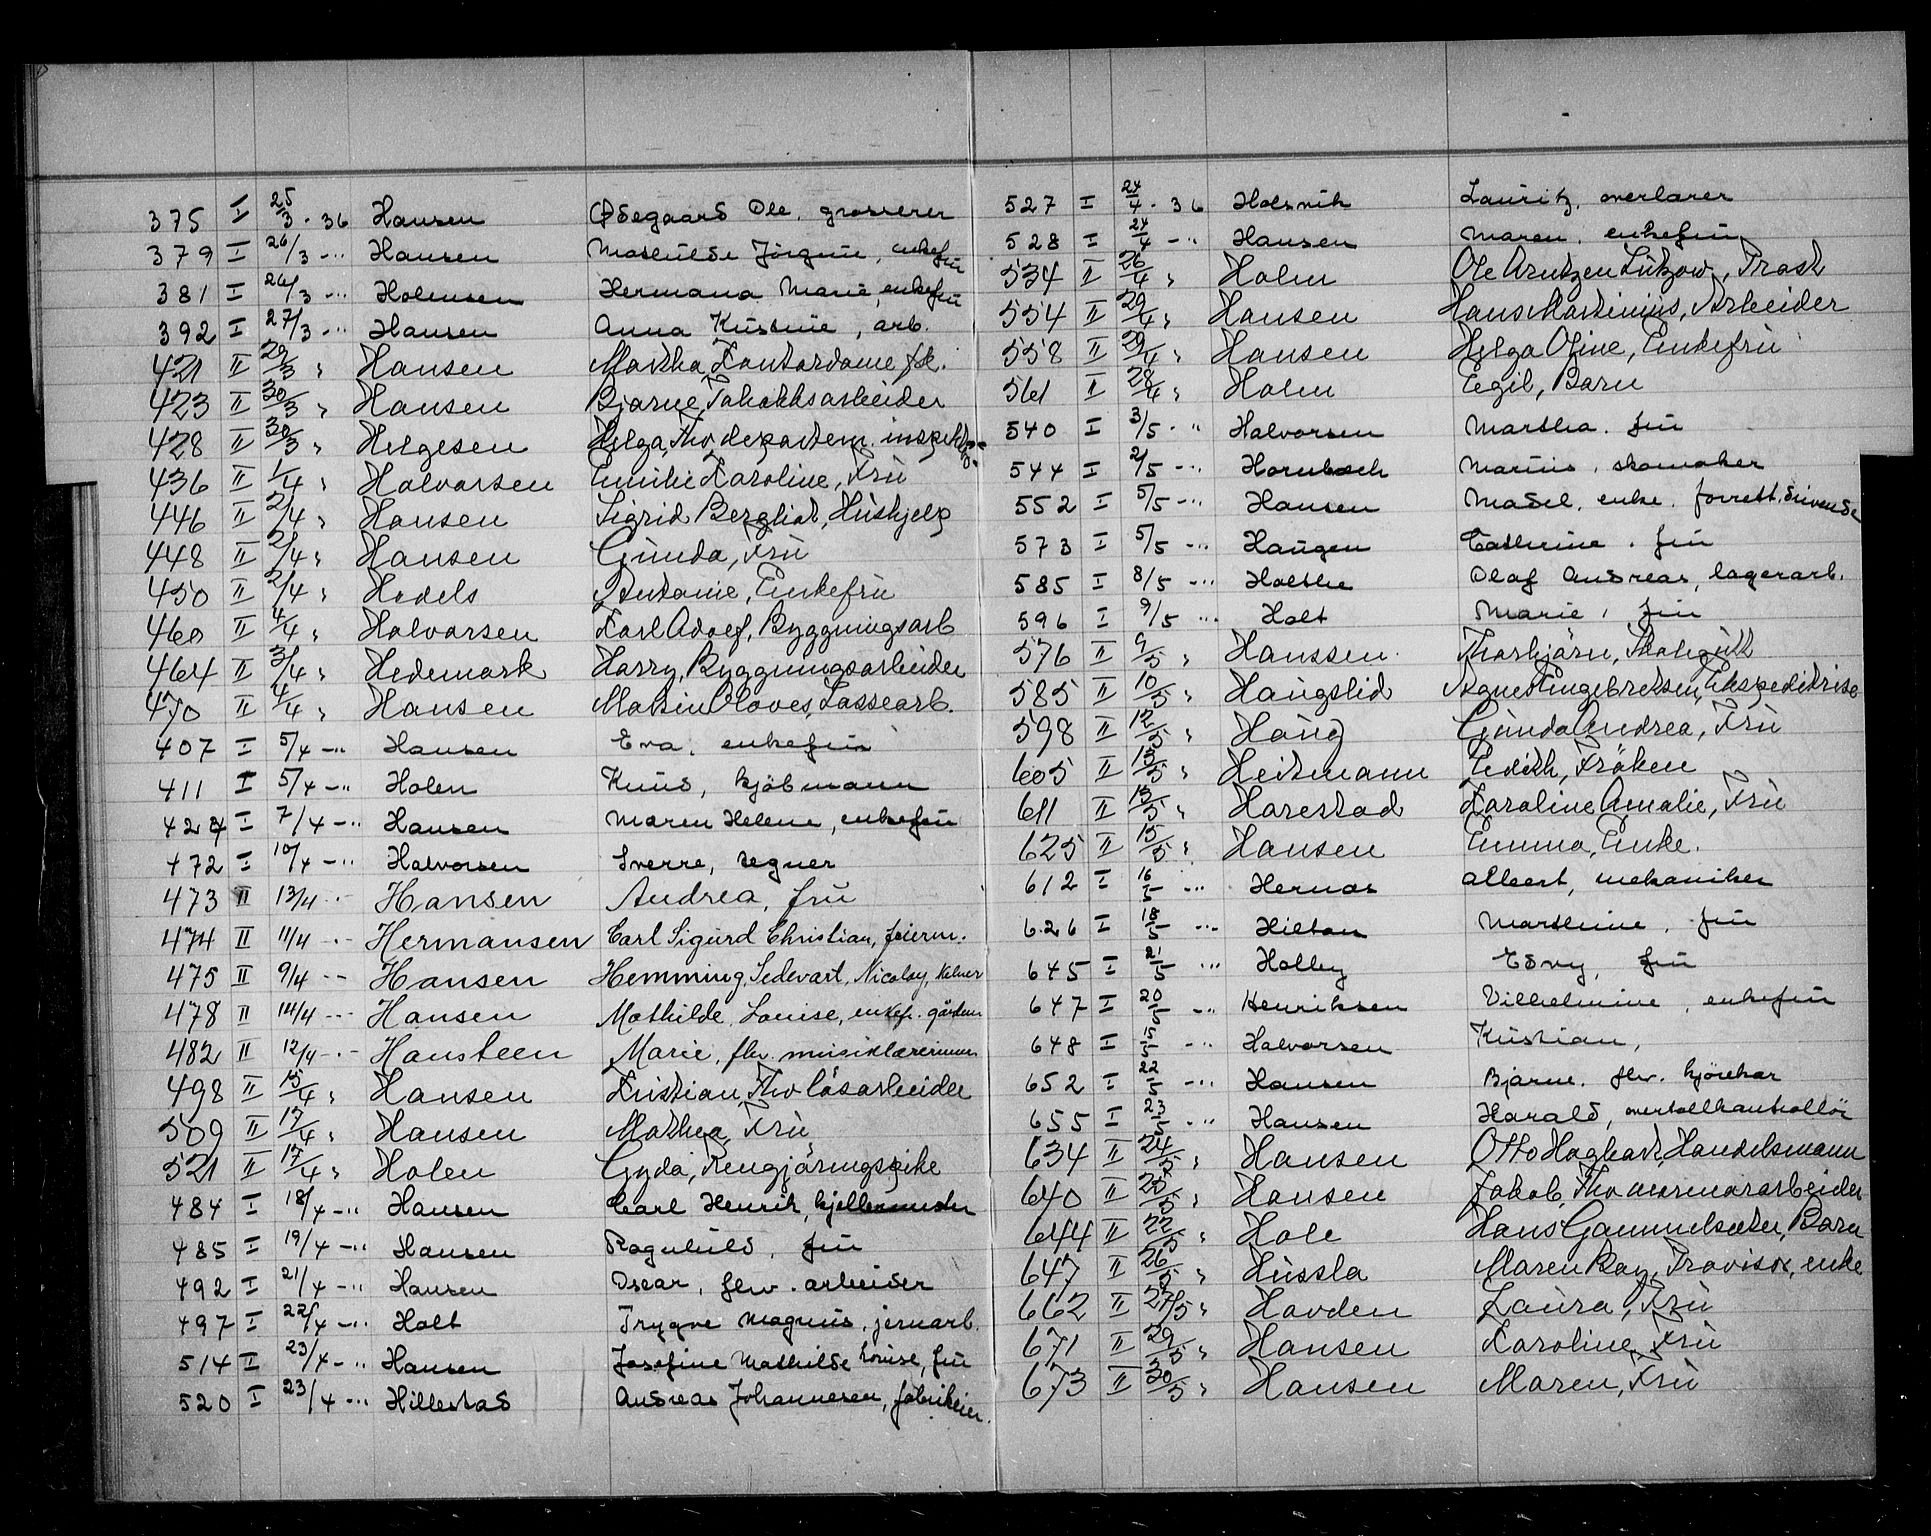 375 I 25/3 - 36 Hansen Ødegaard Ole, grosserer
379 I 26/3 -"- Hansen Mathilde Jörgine, enkefru
381 I 26/3 -"- Holmsen Hermana Marie, enkefru
392 I 27/3 -"- Hansen Anna Kristine, arb.
421 II 29/3 " Hansen Martha, Kontordame fh.
423 II 30/3 " Hansen Bjarne, Tobakksarbeider
428 II 30/3 " Helgesen Helga, Fhv departem. inspektør
436 II 1/4 " Halvorsen Emilie Karoline, Fru
446 II 2/4 " Hansen Sigrid Bergliot, Hushjelp
448 II 2/4 " Hansen Gunda, Fru
450 II 2/4 " Hodels Antonie, Enkefru
460 II 4/4 " Halvorsen Karl Adolf, Byggningsarb
464 II 3/4 " Hedemark Harry, Byggningsarbeider
470 II 4/4 " Hansen Martin Olaves, Lossearb.
407 I 5/4 -"- Hansen Eva, enkefru
411 I 5/4 -"- Holen Knud, kjöbmann
424 I 7/4 -"- Hansen Maren Helene, enkefru
472 I 10/4 -"- Halvorsen Sverre, tegner
473 II 13/4 -"- Hansen Andrea, fru
474 II 11/4 -"- Hermansen Carl Sigurd Christian, feierm.
475 II 9/4 -"- Hansen Hemming, Sedevart, Nicolay, kelner
478 II 14/4 -"- Hansen Mathilde Louise, enkefr. gårdein
482 II 12/4 -"- Hansteen Marie, fhv. musiklærerinne
498 II 15/4 " Hansen Kristian, Fhv løsarbeider
509 II 17/4 " Hansen Mathea, Fru
521 II 17/4 " Holen Gyda, Rengjøringspike
484 I 18/4 -"- Hansen Carl Henrik, kjellermester
485 I 19/4 -"- Hansen Ragnhild, fru
492 I 21/4 -"- Hansen Oscar, fhv. arbeider
497 I 22/4 -"- Holt Trygve Magnus, jernarb.
514 I 23/4 -"- Hansen Josefine Mathilde Louise, fru
520 I 23/4 -"- Hillestad Andreas Johannesen, fabrikeier.
527 I 24/4 - 36 Holsvik Lauritz, overlærer
528 I 24/4 -"- Hansen Maren, enkefru
534 II 26/4 " Holm Ole Arntzen Lützow, Prost
554 II 29/4 " Hansen Hans Martinius, Arbeider
558 II 29/4 " Hansen Helga Oline, Enkefru
561 II 28/4 " Holm Egil, Barn
540 I 3/5 -"- Halvorsen Martha, fru
544 I 2/5 -"- Hornbech Marius, skomaker
552 I 5/5 -"- Hansen Madel, enke, forrett.drivende
573 I 5/5 -"- Haugen Cathrine, fru
585 I 8/5 -"- Holthe Olaf Andreas, lagerarb.
596 I 9/5 -"- Holt Marie, fru
576 II 9/5 " Hanssen Thorbjørn, Skolegutt
585 II 10/5 " Haugslid Agnes Engebretsen, Ekspeditrise
598 II 12/5 " Haug Gunda Andrea, Fru
605 II 13/5 " Heitmann Edith, Frøken
611 II 13/5 " Harestad Karoline Amalie, Fru
625 II 15/5 " Hansen Emma, Enke.
612 I 16/5 -"- Hernas Albert, mekaniker
626 I 18/5 -"- Hilton Marthine, fru
645 I 21/5 -"- Holby Edny, fru
647 I 20/5 -"- Henriksen Vilhelmine, enkefru
648 I 15/5 -"- Halvorsen Kristian,
652 I 22/5 -"- Hansen Bjarne, fhv. kjörekar
655 I 23/5 -"- Hansen Harald, overtollkontrollör
634 II 24/5 " Hansen Otto Hagbart, Handelsmann
640 II 25/5 " Hansen Jakob, Fhv marmorarbeider
644 II 22/5 " Hole Hans Gammelsæter, Barn
647 II 26/5 " Hussla Maren Bay, Provisor, enke
662 II 27/5 " Hovden Laura, Fru
671 II 29/5 " Hansen Karoline, Fru
673 II 30/5 " Hansen Maren, Fru